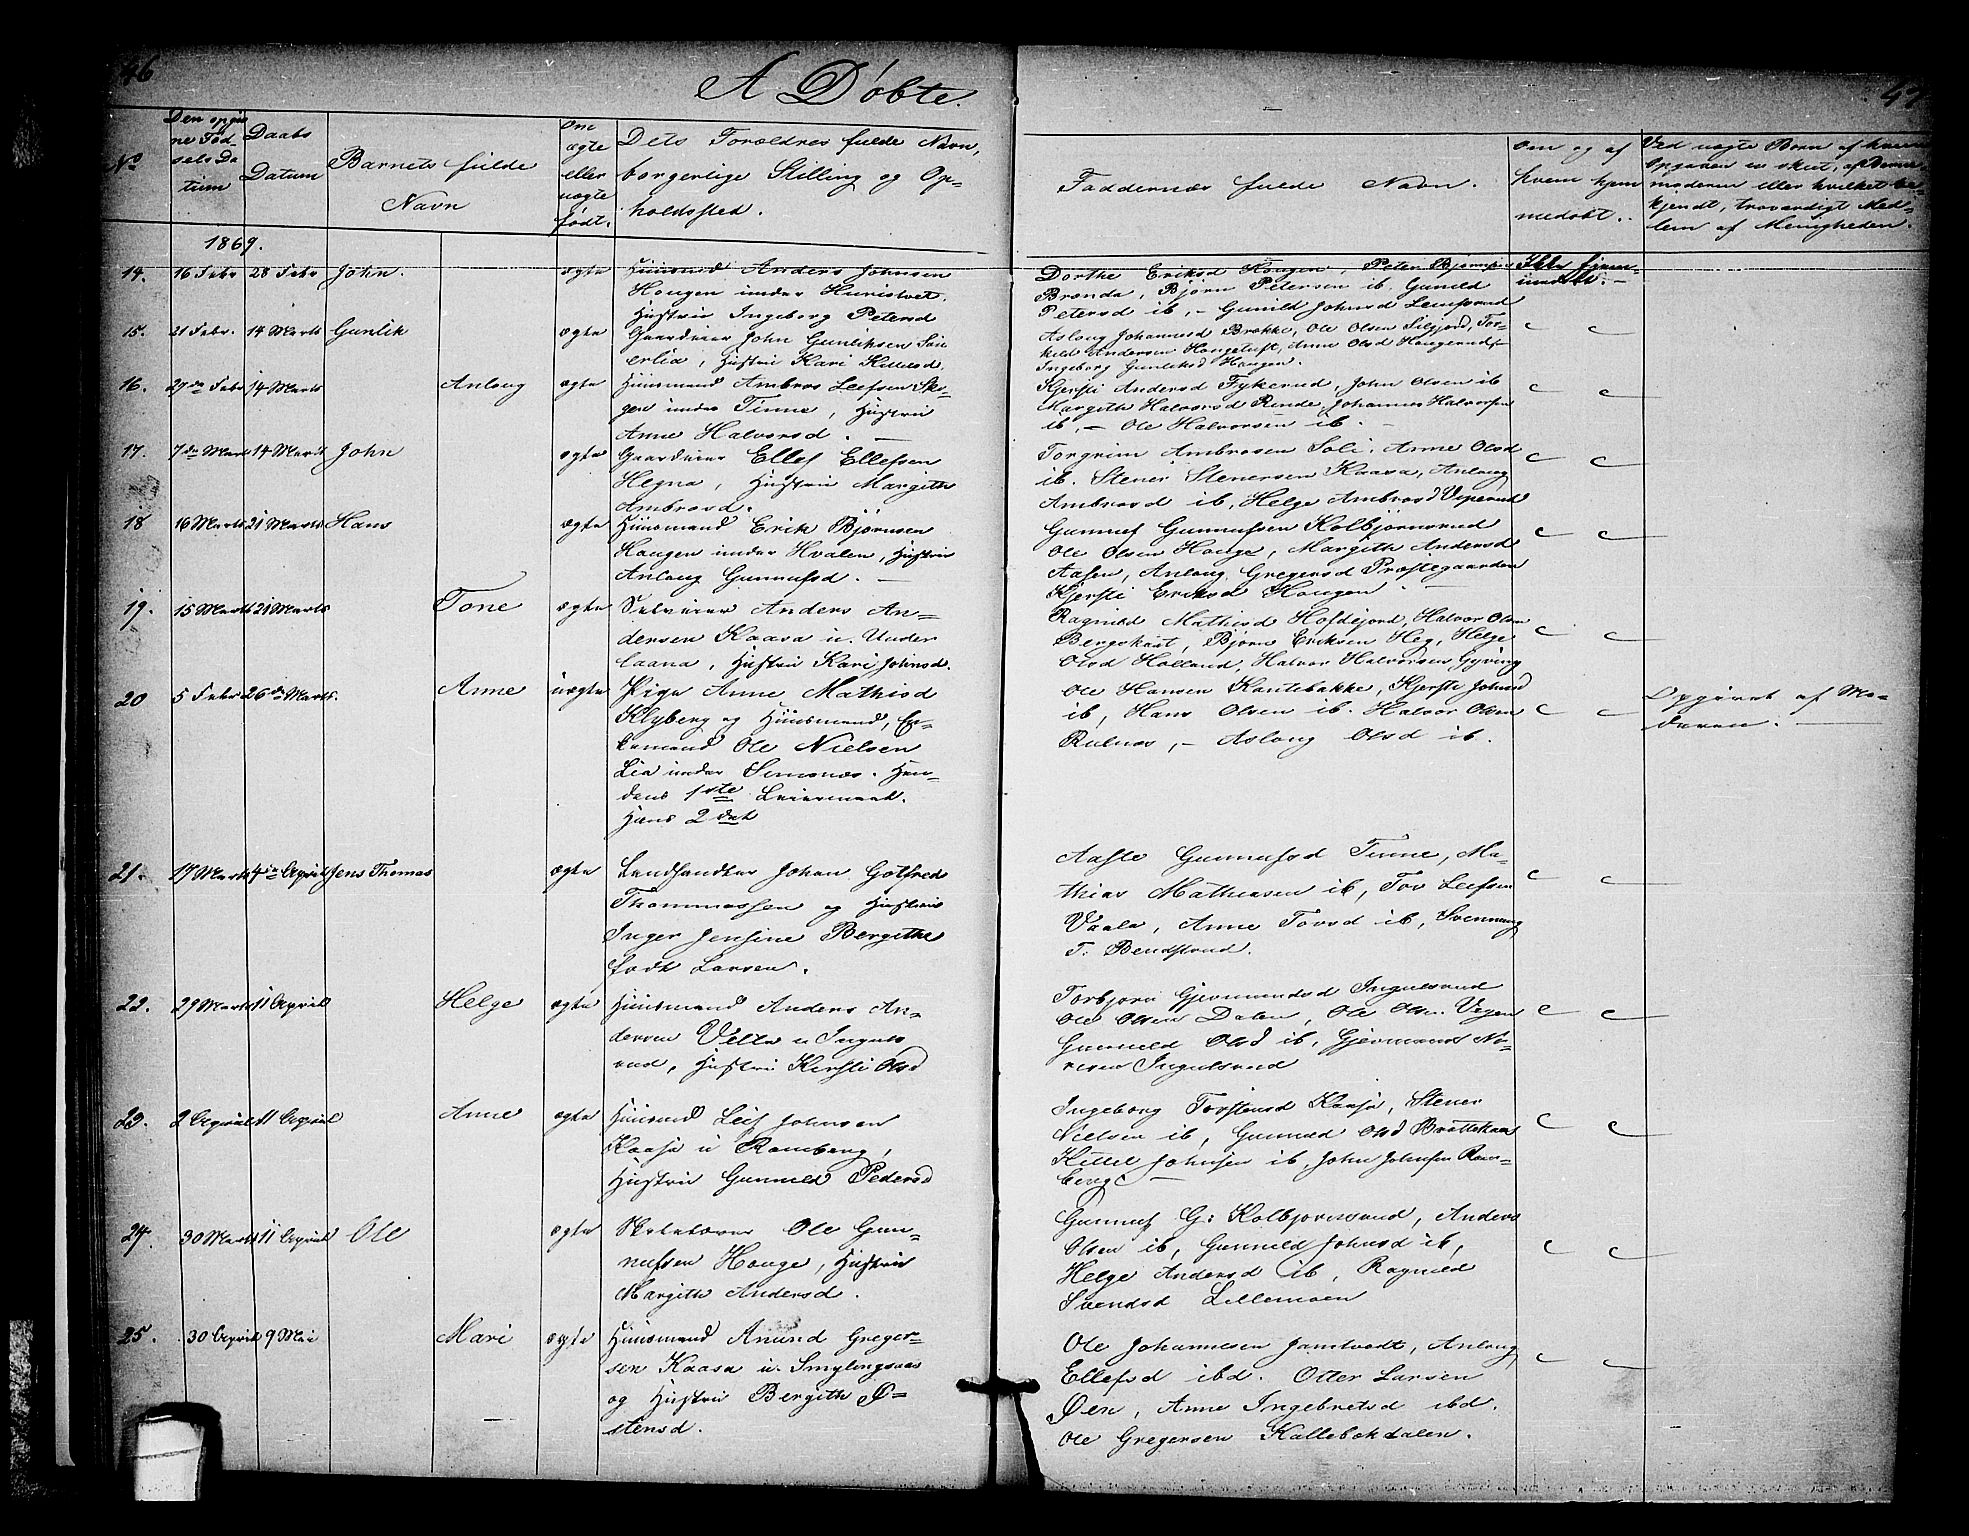 46
A Døbte.
47
No
Den opgiv
ne Fød-
sels Da
tum
Daabs
Datum
Barnets fulde
Navn
Om
ægte
eller
uægte
født.
Dets Forældres fulde Navn,
borgerlige Stilling og Op-
holdssted.
Faddernes fulde Navn.
Om og af
hvem hjem
medøbt.
Ved uægte Børn af hvem
Opgaven er skeet, af Barne
moderen eller hvilket be-
kjendt, troværdigt Med-
lem af Menigheden.
1869.
14. 16 Febr 28 Febr John. ægte Huusmd Anders Johnsen
Hougen under
Hustru Ingeborg Petersd
Dorthe Eriksd Hougen, Peter Bjørnsen Ikke hjem-
Brenda, Bjørn Petersen ib, Gunild medøbt. —
Petersd ib, — Gunild Johnsd
15. 21 Febr. 14 Marts Gunlik ægte Gaardeier John Gunliksen
Hustru Kari
Asloug Johannesd Brække, Ole Olsen Siljord, Tor-
kild Andersen Anne Olsd Haugerud
Ingeborg Gunliksd Hougen.
16. 27de Febr 14 Marts Anloug ægte Huusmand Ambros Leefsen Sko-
gen under Tinne, Hustru
Anne Halvorsd. —
Kjersti Andersd Fykerud, John Olsen ib
Margith Halvorsd Rende, Johannes Halvorsen
ib, — Ole Halvorsen ib. —
17. 7de Marts 14 Marts John ægte Gaardeier Ellef Ellefsen
Hegna, Hustru Margith
Ambrosd.
Torgrim Ambrosen Soli, Anne Olsd
ib. Stener Stenersen Kaasa, Anloug
Ambrosd ib, Helge Ambrosd
18 16 Marts 21 Marts Hans ægte Huusmand Erik Bjørnsen
Hougen under Hvalen, Hustru
Anloug Gunnufsd. —
Gunnuf Gunnufsen Kolbjørnsrud
Ole Olsen Houge, Margith Andersd
Aasen, Anloug Gregersd Præstegaarden
Kjersti Eriksd Hougen —
19. 15 Marts 21 Marts Tone ægte Selveier Anders An-
dersen Kaasa u. Under
laana, Hustru Kari Johnsd.
Ragnild Mathisd Hofdejord, Halvor Olsen
Bergskaat, Bjørn Eriksen Heg, Helge
Olsd Holland, Halvor Halvorsen Gyving
20 5 Febr 26de Marts. Anne uægte Pige Anne Mathisd
Klyberg og Huusmand, En-
kemand Ole Nielsen
Lia under Semsnæs. Hen-
des 1ste Leiermaal.
Hans 2det
Ole Hansen Kantebakke, Kjersti Johnsd
ib, Hans Olsen ib. Halvor Olsen
— Asloug Olsd ib.
Opgivet af Mo-
deren. —
21. 17 Marts 4de April Jens Thomas ægte Landhandler Johan Gotfred
Thommassen og Hustru
Inger Jensine Bergithe
født Larsen.
Aaste Gunnufsd Tinne, Ma-
thias Mathiesen ib, Tov Leefsen
Vaala, Anne Tovsd ib, Svennung
T. Bendstrud.
22. 29 Marts 11 April Helge ægte Huusmand Anders An-
dersen Velta u Inguls
rud, Hustru Kersti Olsd
Torbjørn Gjermundsd Ingulsrud
Ole Olsen Dalen, Ole Olsen
Gunnild Olsd ib, Gjermund
Ingulsrud
23. 2 April 11 April Anne ægte Huusmd Leif Johnsen
Kaasa u Ramberg,
Hustru Gunnild Pedersd
Ingeborg Torstensd Kaasa, Stener
Nielsen ib, Gunnild Olsd
Kittel Johnsen ib, John Johnsen Ram-
berg —
24. 30 Marts 11 April Ole ægte Skolelærer Ole Gun-
nufsen Houge, Hustru
Margith Andersd.
Gunnuf G: Kolbjørnsrud, Anders
Olsen ib, Gunnild Johnsd ib,
Helge Andersd ib, Ragnild
Svendsd Lillemoen
25. 30 April 9 Mai Mari ægte Huusmand Anund Greger-
sen Kaasa u. Smylingsaas
og Hustru Bergith Ø-
stensd.
Ole Johannesen Jamtvedt, Anloug
Ellefsd ibd. Otter Larsen
Øen, Anne Ingebretsd ibd.
Ole Gregersen Kallebekdalen.